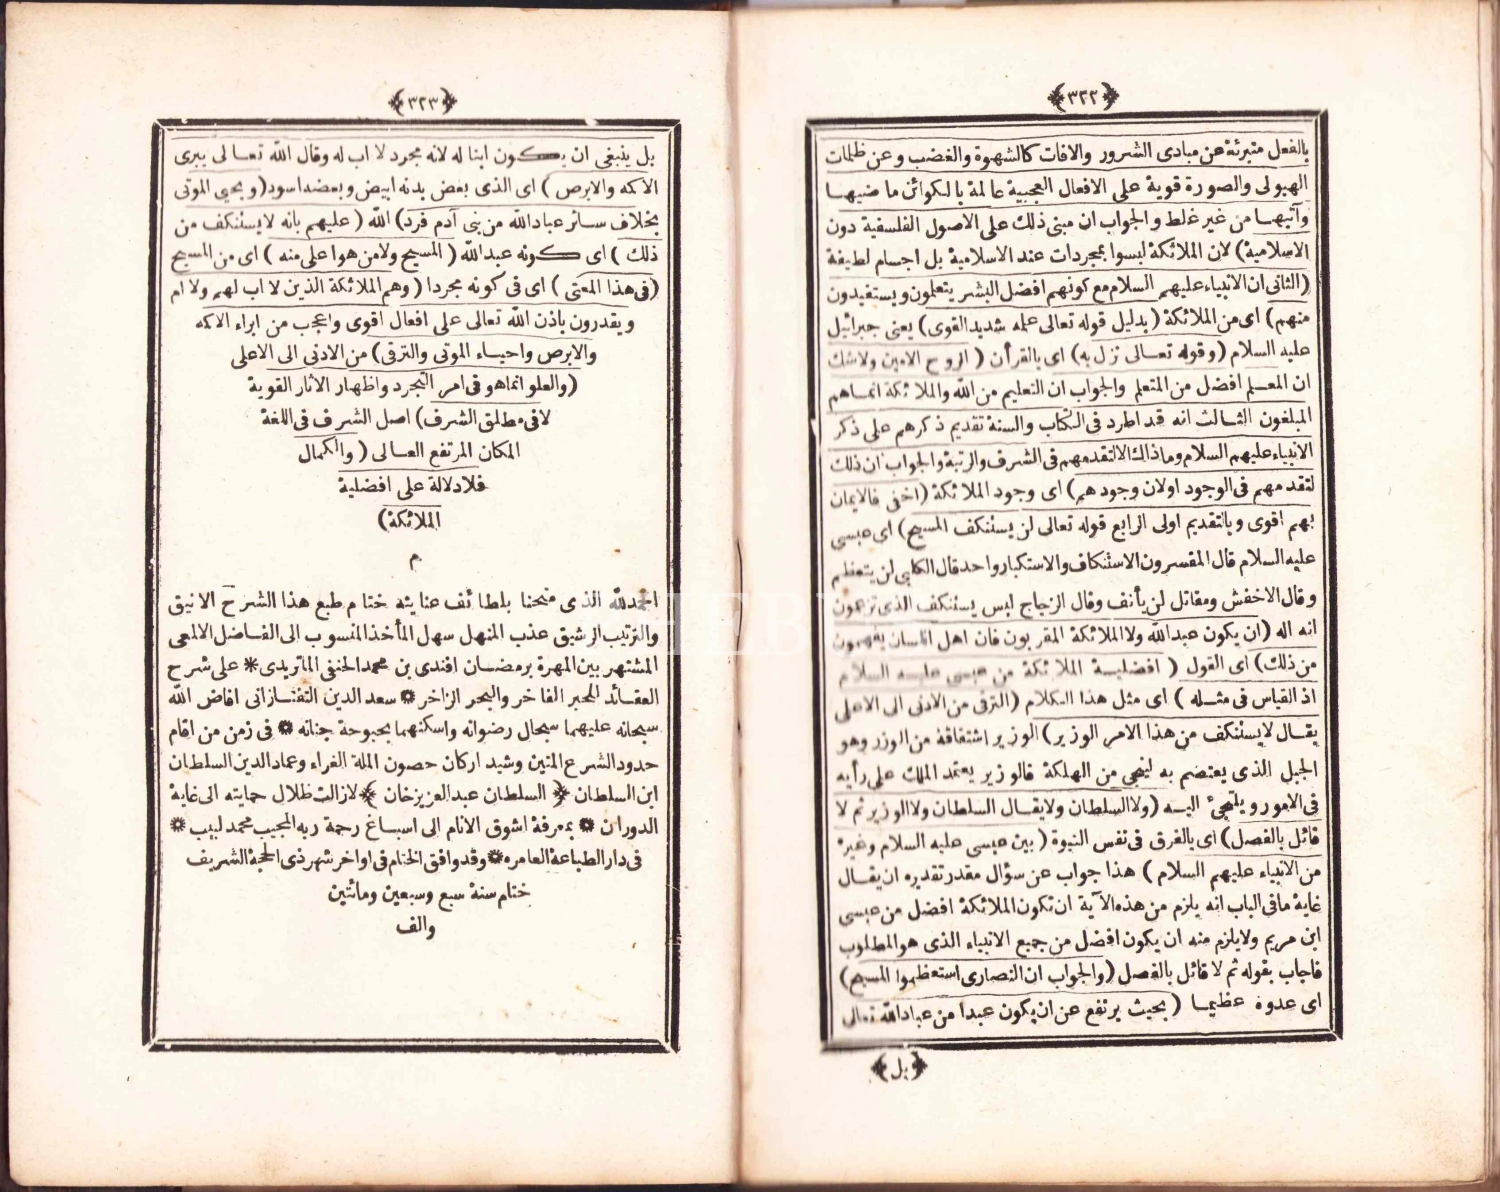 ﴿٣٢٢﴾
بالفعل متبرئة عن مبادى الشرور والافات كالشهوة والغضب وعن ظلمات
الهيولى والصورة قوية على الافعال العجيبة عالمة بالكوائن ماضيها
وآتيها من غير غلط والجواب ان مبنى ذلك على الاصول الفلسفية دون
الاسلامية) لان الملائكة ليسوا بمجردات عند الاسلامية بل اجسام لطيفة
(الثانى ان الانبياء عليهم السلام مع كونهم افضل البشر يتعلمون ويستفيدون
منهم) اى من الملائكة (بدليل قوله تعالى علمه شديد القوى) يعنى جبرائيل
عليه السلام (وقوله تعالى نزل به) اى بالقرأن (الروح الامين ولاشك
ان المعلم افضل من المتعلم والجواب ان التعليم من الله والملائكة انماهم
المبلغون الثالث انه قد اطرد فى الكتاب والسنة تقديم ذكرهم على ذكر
الانبياء عليهم السلام وماذاك الالتقدمهم فى الشرف والرتبة والجواب ان ذلك
لتقدمهم فى الوجود اولان وجودهم) اى وجود الملائكة (اخفى فالايمان
بهم اقوى وبالتقديم اولى الرابع قوله تعالى لن يستنكف المسيح) اى عيسى
عليه السلام قال المفسرون الاستنكاف والاستكبار واحد قال الكلبى لن يتعظم
وقال الاخفش ومقاتل لن يأنف وقال الزجاج ليس يستنكف الذى تزعمون
انه اله (ان يكون عبدالله ولا الملائكة المقربون فان اهل اللسان يفهمون
من ذلك) اى القول (افضلية الملائكة من عيسى عليه السلام
اذ القياس فى مثله) اى مثل هذا الكلام (الترقى من الادنى الى الاعلى
يقال لايستنكف من هذا الامر الوزير) الوزير اشتقاقه من الوزر وهو
الجبل الذى يعتصم به لينجى من الهلكة فالوزير يعتمد الملك على رأيه
فى الامور ويلتجئ اليه (ولا السلطان ولايقال السلطان ولا الوزير ثم لا
قائل بالفصل) اى بالفرق فى نفس النبوة (بين عيسى عليه السلام وغيره
من الانبياء عليهم السلام) هذا جواب عن سؤال مقدر تقديره ان يقال
غاية مافى الباب انه يلزم من هذه الآية ان تكون الملائكة افضل من عيسى
ابن مريم ولايلزم منه ان يكون افضل من جميع الانبياء الذى هو المطلوب
فاجاب بقوله ثم لا قائل بالفصل (والجواب ان النصارى استعظموا المسيح)
اى عدوه عظيما (بحيث يرتفع عن ان يكون عبدا من عبادالله تعالى
﴿بل﴾
﴿٣٢٣﴾
بل ينبغى ان يكون ابنا له لانه مجرد لا اب له وقال الله تعالى يبرى
الاكمه والابرص) اى الذى بعض بدنه ابيض وبعضه اسود (ويحيى الموتى
بخلاف سائر عبادالله من بنى آدم فرد) الله (عليهم بانه لايستنكف من
ذلك) اى كونه عبدالله (المسيح ولامن هوا على منه) اى من المسيح
(فى هذا المعنى) اى فى كونه مجردا (وهم الملائكة الذين لا اب لهم ولا ام
ويقدرون باذن الله تعالى على افعال اقوى واعجب من ابراء الاكمه
والابرص واحياء الموتى والترقى) من الادنى الى الاعلى
(والعلو انماهو فى امر التجرد واظهار الاثار القوية
لافى مطلق الشرف) اصل الشرف فى اللغة
المكان المرتفع العالى (والكمال
فلادلالة على افضلية
الملائكة)
م
الحمدلله الذى منحنا بلطائف عنايته ختام طبع هذا الشرح الانيق
والترتيب الرشيق عذب المنهل سهل المأخذ المنسوب الى الفاضل الالمعى
المشتهر بين المهرة برمضان افندى بن محمد الحنفى الماتريدى * على شرح
العقائد للحبر الفاخر والبحر الزاخر * سعد الدين التفتازانى افاض الله
سبحانه عليهما سبحال رضوانه واسكنهما بحبوحة جنانه * فى زمن من اقام
حدود الشرع المتين وشيد اركان حصون الملة الغراء وعماد الدين السلطان
ابن السلطان ﴿السلطان عبدالعزيزخان﴾ لازالت ظلال حمايته الى غاية
الدوران * بمعرفة اشوق الانام الى اسباغ رحمة ربه المجيب محمد لبيب *
فى دار الطباعة العامره * وقد وافق الختام فى اواخر شهر ذى الحجة الشريف
ختام سنة سبع وسبعين ومائتين
والف